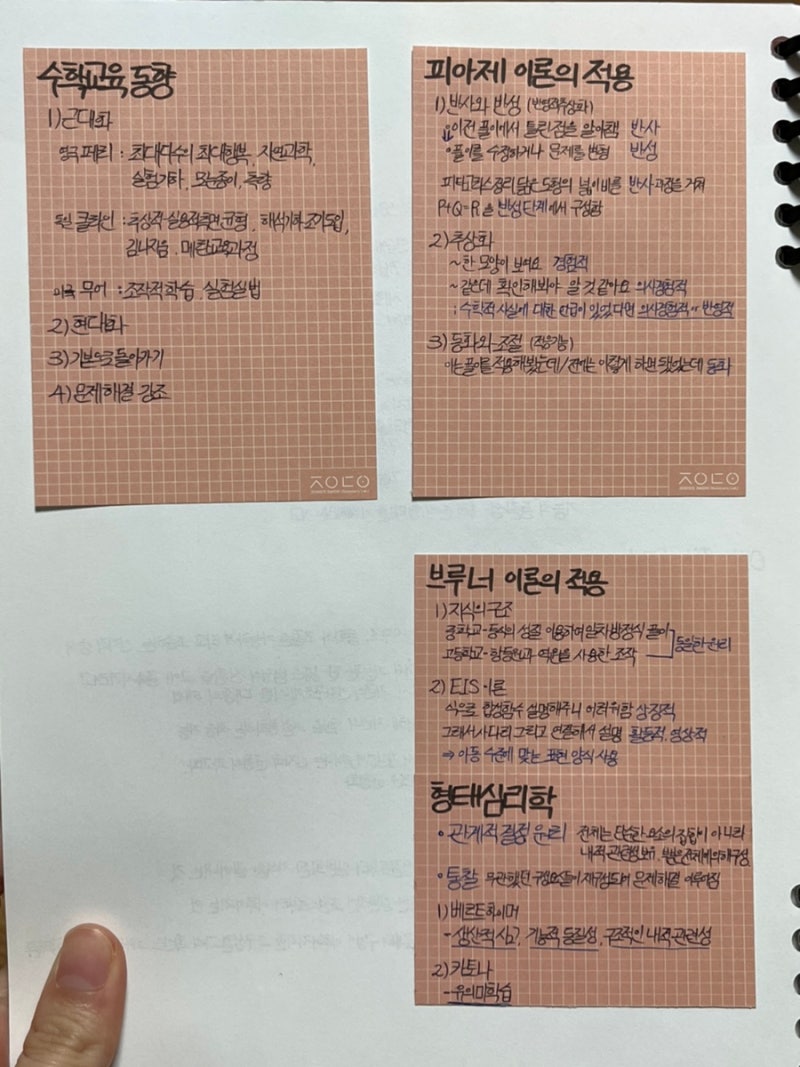 수학교육 동향
1) 근대화
영국 페리 : 최대다수의 최대행복, 자연과학,
실험기하, 모눈종이, 측량
독일 클라인 : 추상적·실용적 측면 균형, 해석기하 조기도입,
메란교육과정
미국 무어 : 조작적 학습, 실험실법
2) 현대화
3) 기본으로 돌아가기
4) 문제해결 강조
피아제 이론의 적용
1) 반사와 반성 (반영적추상화)
이전 풀이에서 틀린점을 알아챔 반사
풀이를 수정하거나 문제를 변형 반성
피타고라스정리 닮은 도형의 넓이비를 반사 과정을 거쳐
P+Q=R 을 반성 단계에서 구성함
2) 추상화
~한 모양이 보여요 경험적
~같은데 확인해봐야 알 것 같아요 의사경험적
: 수학적 사실에 대한 언급이 있었다면 의사경험적 or 반영적
3) 동화와 조절 (적응기능)
아는 풀이를 적용해봤는데/전에는 이렇게 하면 됐었는데 동화
브루너 이론의 적용
1) 지식의 구조
중학교-등식의 성질 이용하여 일차방정식 풀이
고등학교-항등원과 역원을 사용한 조작
동일한 원리
2) EIS 이론
식으로 합성함수 설명해주니 어려워함 상징적
그래서 사다리 그리고 연결해서 설명 활동적, 영상적
⇒ 아동 수준에 맞는 표현 양식 사용
형태심리학
• 관계적 결정 원리 전체는 단순한 요소의 집합이 아니라
내적 관련성 보유, 부분은 전체에 의해 구성
• 통찰 무관했던 구성요소들이 재구성되어 문제해결 이루어짐
1) 베르트하이머
- 생산적 사고, 기능적 동질성, 구조적인 내적 관련성
2) 카토나
- 유의미학습